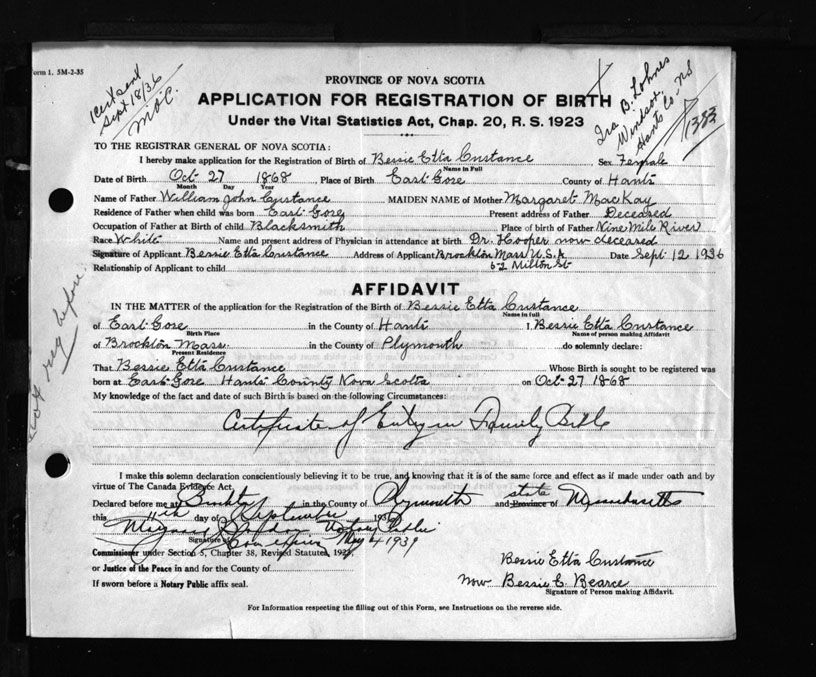 Form 1. 5M-2-35
Cert sent
Sept 18/36
M.O.C.
Ira B. Lohnes
Windsor,
Hants Co. NS
1383
PROVINCE OF NOVA SCOTIA
APPLICATION FOR REGISTRATION OF BIRTH
Under the Vital Statistics Act, Chap. 20, R. S. 1923
TO THE REGISTRAR GENERAL OF NOVA SCOTIA:
I hereby make application for the Registration of Birth of Bessie Etta Custance Sex Female
Name in Full
Date of Birth Oct 27 1868 Place of Birth East Gore County of Hants
Month Day Year
Name of Father William John Custance MAIDEN NAME of Mother Margaret MacKay
Residence of Father when child was born East Gore Present address of Father Deceased
Occupation of Father at Birth of child Blacksmith Place of Birth of Father Nine Mile River
Race White Name and present address of Physician in attendance at birth Dr. Hooper now deceased
Signature of Applicant Bessie Etta Custance Address of Applicant Brockton Mass U.S.A Date Sept 12 1936
Relationship of Applicant to child 62 Milton St
not reg before
AFFIDAVIT
IN THE MATTER of the application for the Registration of the Birth of Bessie Etta Custance
Name in full
of East Gore in the County of Hants I, Bessie Etta Custance
Birth Place Name of person making Affidavit
of Brockton Mass. in the County of Plymouth do solemnly declare:
Present Residence
That Bessie Etta Custance Whose Birth is sought to be registered was
born at East Gore Hants County Nova Scotia on Oct 27 1868
My knowledge of the fact and date of such Birth is based on the following Circumstances:
Certificate of Entry in Family Bible
I make this solemn declaration conscientiously believing it to be true, and knowing that it is of the same force and effect as if made under oath and by
virtue of The Canada Evidence Act.
state
Declared before me at Brockton in the County of Plymouth and Province of Massachusetts
this day of September 193
Notary Public
Signature of
Com expires May 4 1939
Commissioner under Section 5, Chapter 38, Revised Statutes, 1923
or Justice of the Peace in and for the County of
If sworn before a Notary Public affix seal.
Bessie Etta Custance
Now Bessie E. Bearce
Signature of Person making Affidavit.
For Information respecting the filling out of this Form, see Instructions on the reverse side.